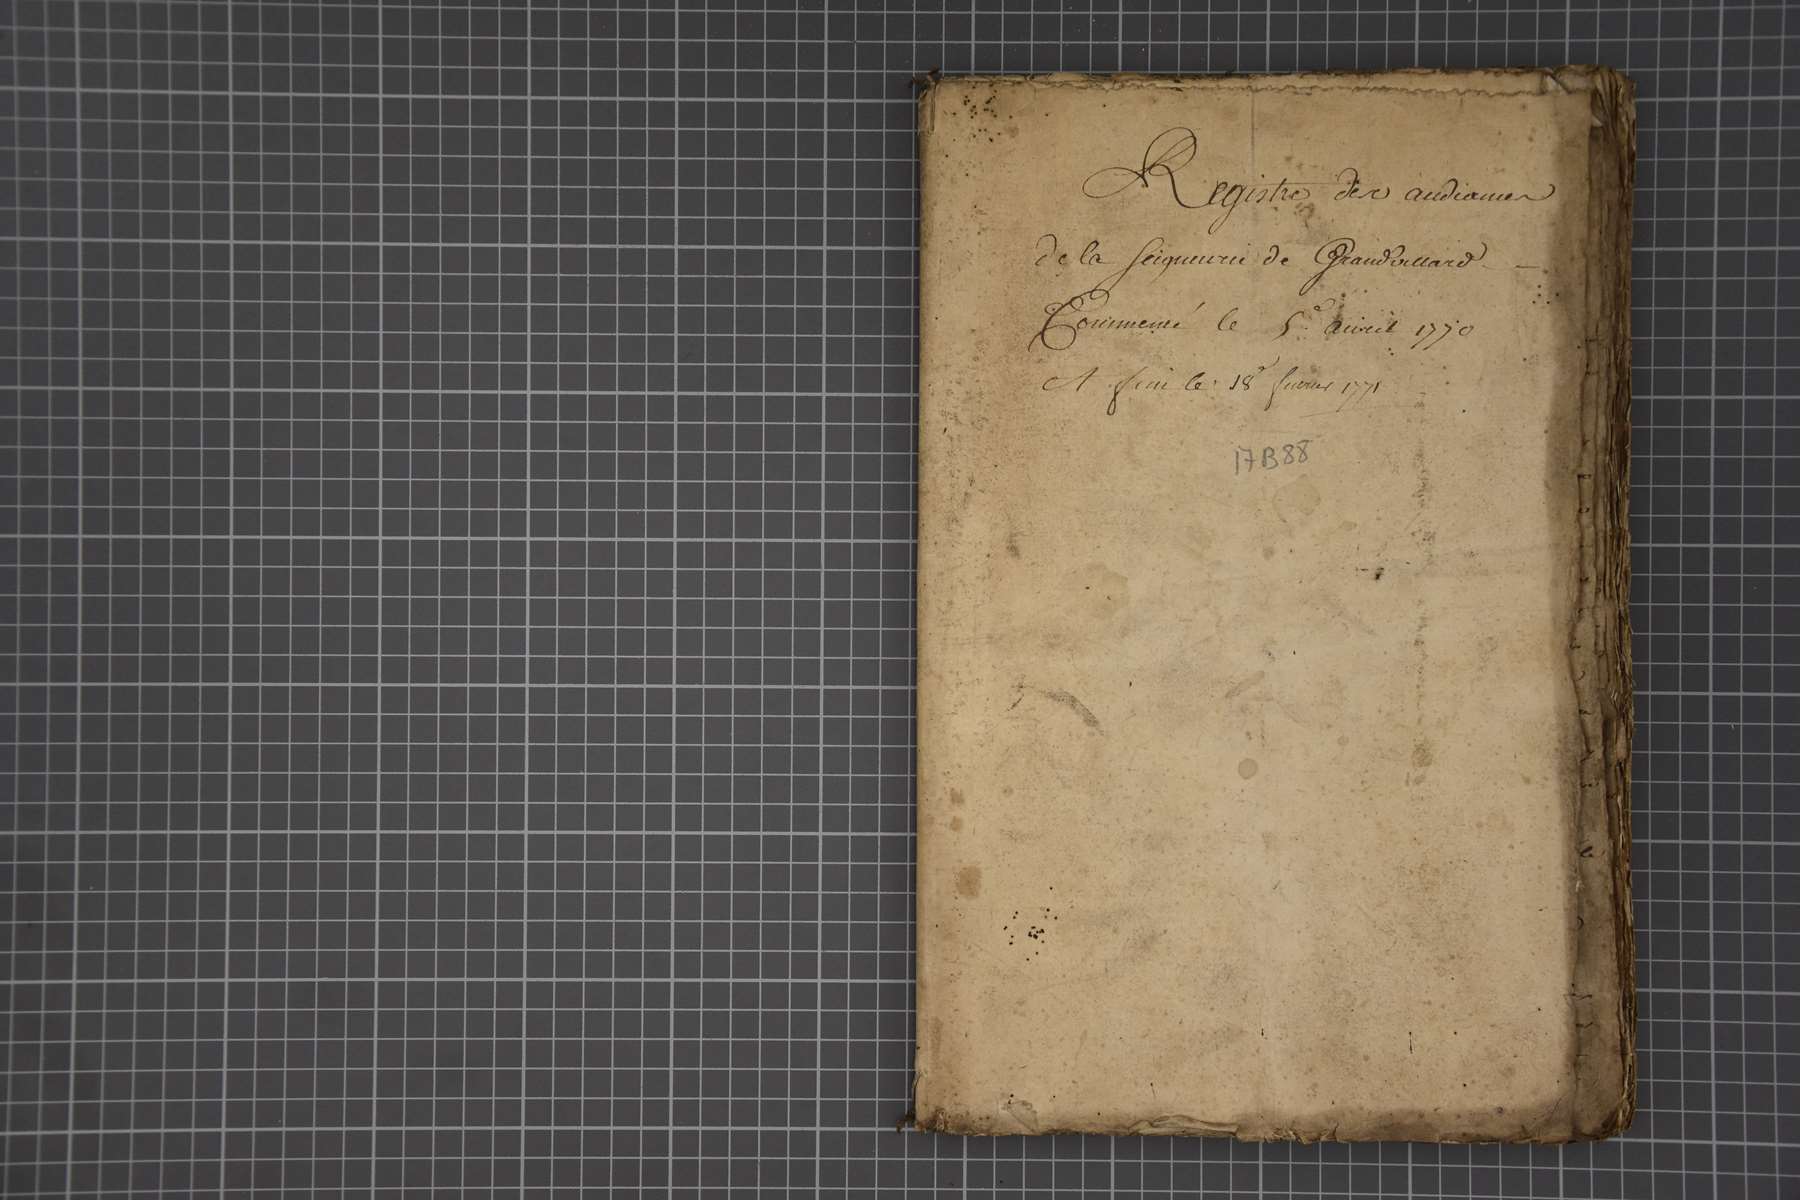 Registre des audiances
de la Seigneurie de Grandvillard
Commencé le 5.e avril 1770
A fini le 18e fevrier 1771
17B88